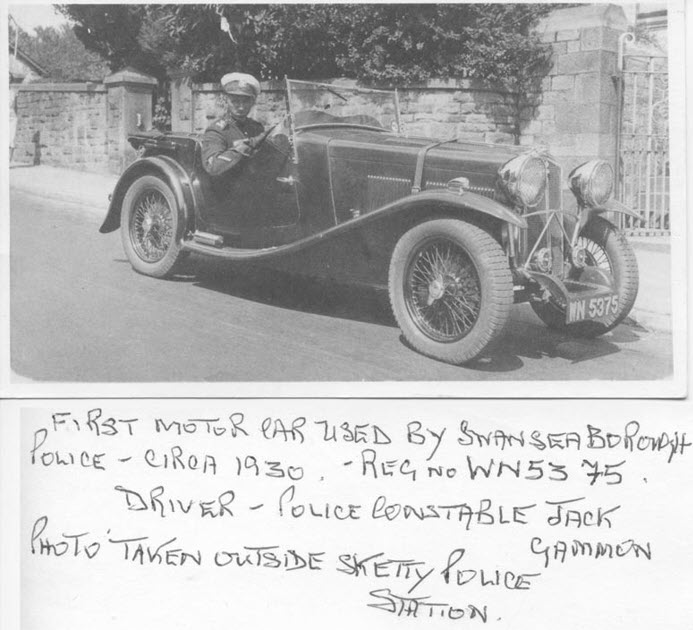 WN 5375
FIRST MOTOR CAR USED BY SWANSEA BOROUGH
POLICE - CIRCA 1930. - REG NO WN5375.
DRIVER - POLICE CONSTABLE JACK
GAMMON
PHOTO TAKEN OUTSIDE SKETTY POLICE
STATION.